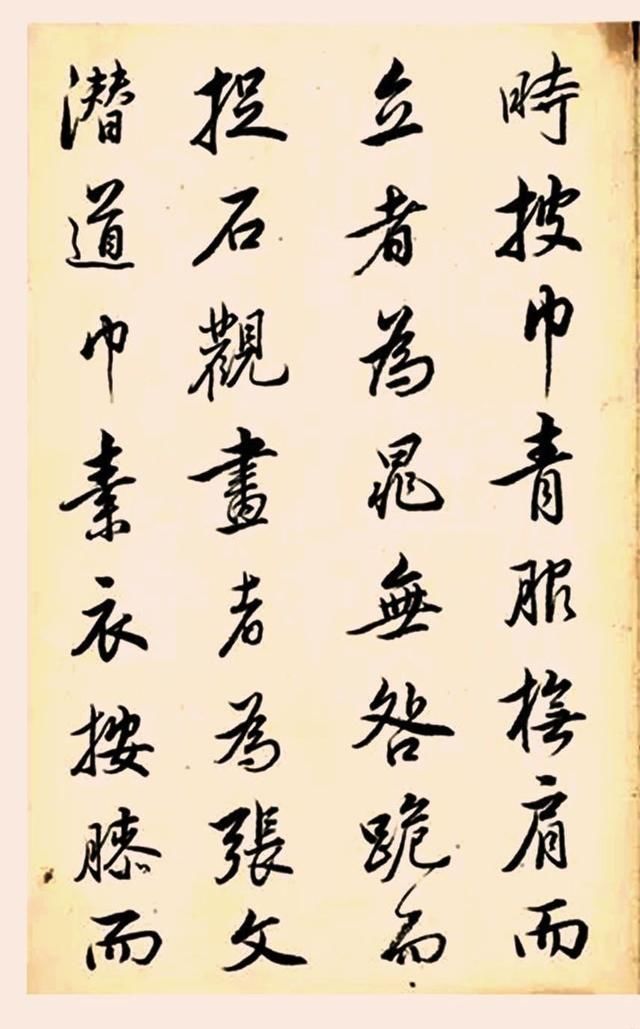 時披巾青服撫肩而
立者為晁無咎跪而
捉石觀畫者為張文
潛道巾素衣按膝而